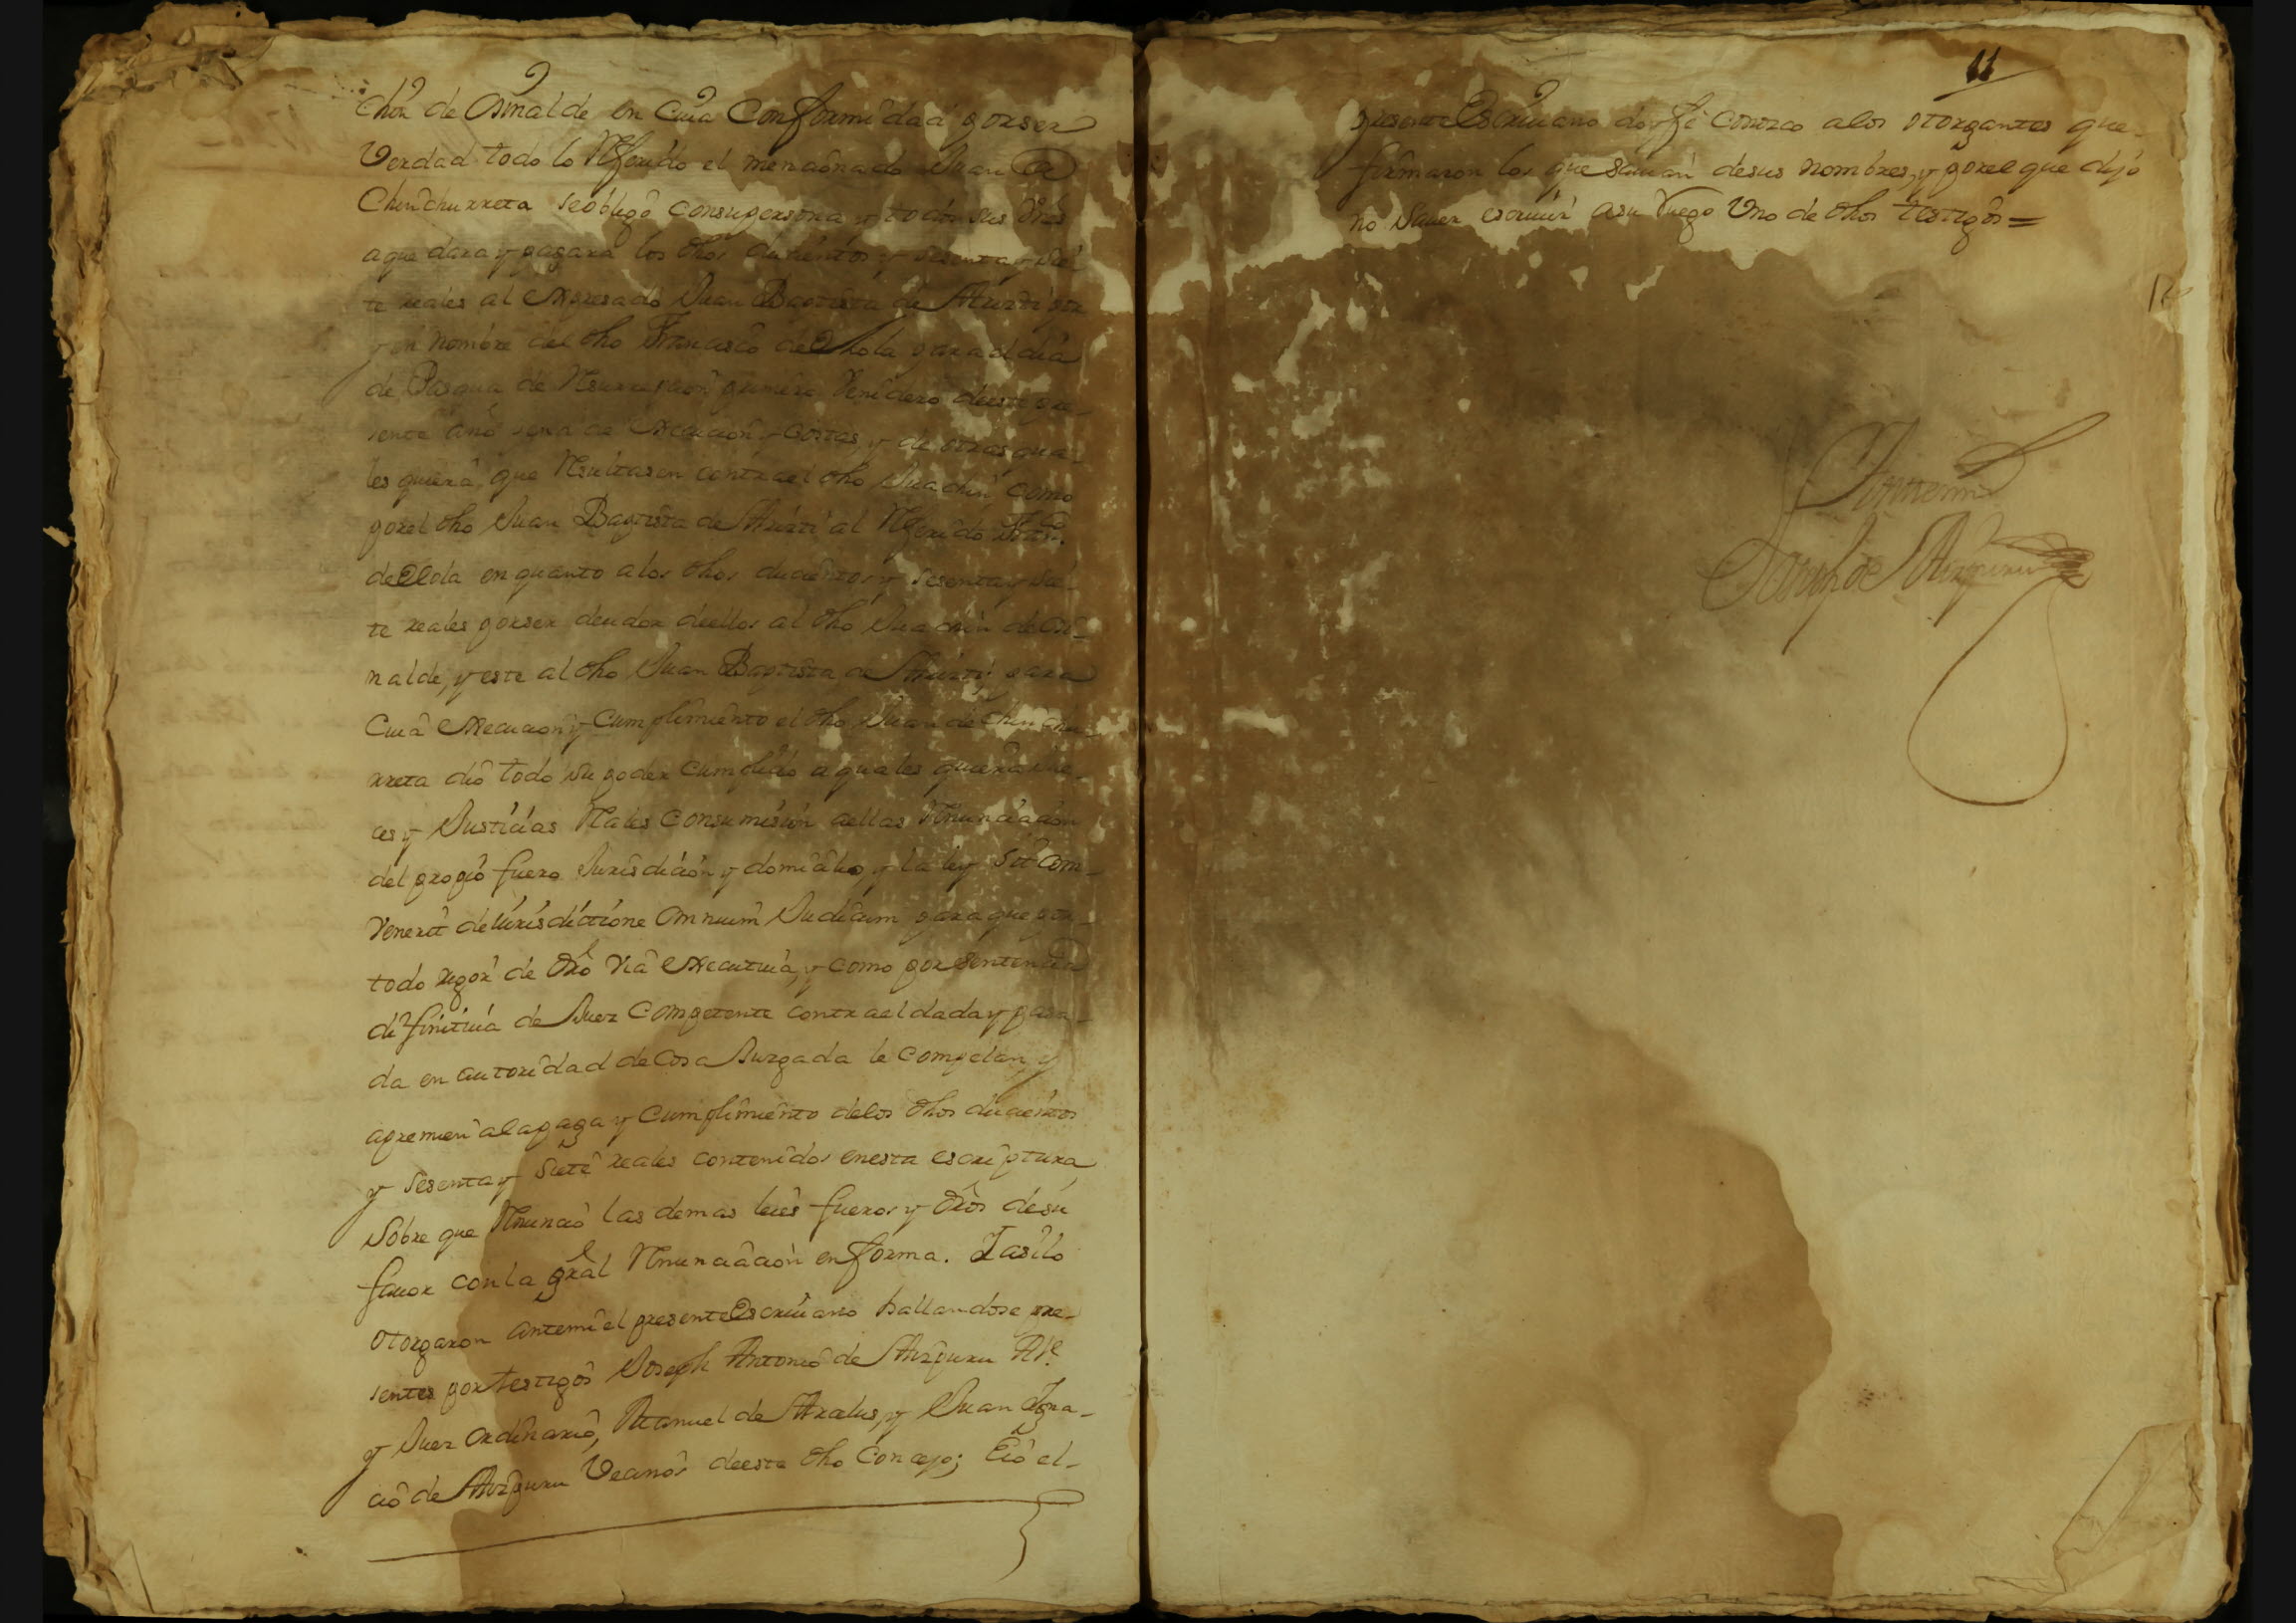 chin de Osinalde en cuia Conformidad y por ser
Verdad todo lo Referido el mencionado Juan de
Chinchurreta se obligò con su persona y todos sus vnês
a que dara y pagará los dhos ducientos y sesenta y sie-
te reales al expresado Juan Baptista de Aturdi por
y en nombre del dho Francisco de Olola para el dia
de Pasqua de Resurrección primero Venidero de este pre-
sente año pena de execucion y costas, y de otras qua-
les quiera que Resultasen contra el dho Juachin como
por el dho Juan Baptista de al Referido Franco.
de en quanto a los dhos ducientos y sesenta y sie-
te reales por ser deudor de ellos al dho Juachin de Osi-
nalde, y este al dho Juan Baptista de para
Cuia execucion y Cumplimiento el dho Juan de Chinchu-
rreta dio todo su poder cumplido a quales quiera jue-
ces y Justicias Reales con sumision a ellas Renunciacion
del propio fuero Jurisdicion y domicilio, y la ley Sit com-
venerit de iurisdictione omnium Judicum para que por
todo rigor de dro via executiva, y como por sentencia
difinitiua de Juez Competente contra el dada y pasa-
da en autoridad de Cosa Juzgada le compelan, y
apremien a la paga y Cumplimiento de los dhos ducientos
y sesenta y siete reales contenidos en esta escriptura
sobre que Renunciò las demas leies fueros y dros de su
fauor con la gral Renunciacion en forma. I asilo
otorgaron ante mi el presente Escriuano hallandose pre-
sentes por testigos Joseph Antonio de Aizpuru Alc.
y Juez ordinario, Manuel de y Juan Igna-
cio de Aizpuru Vecinos de este dho Concejo; E io el-
11
presente Escriuano doy fè conozco a los otorgantes que-
firmaron los que sauian de sus nombres, y por el que dijo
no sauer escriuir a su Ruego Uno de dhos testigos=
12
Ante mi
Joseph de Aizpuru